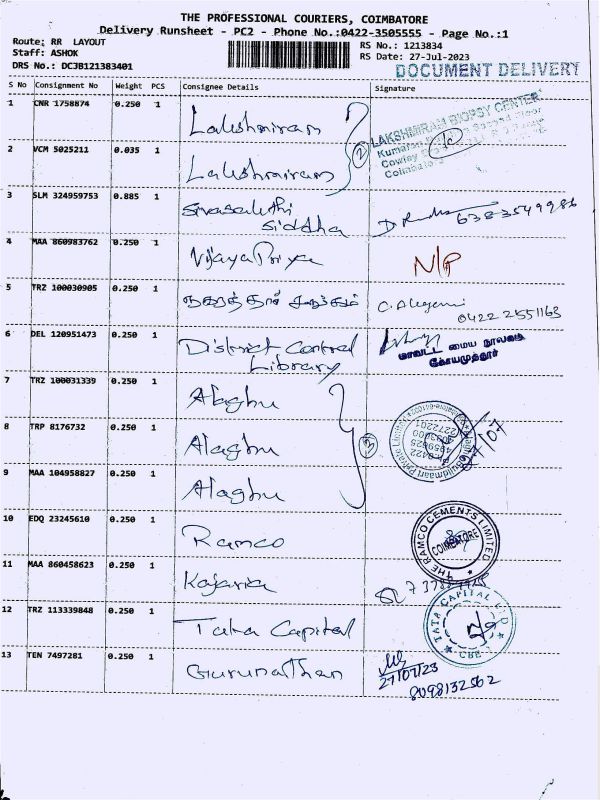 THE PROFESSIONAL COURIERS, COIMBATORE
Delivery Runsheet - PC2 - Phone No.:0422-3505555 - Page No.:1
Route: RR LAYOUT
Staff: ASHOK
DRS No.: DCJB121383401
RS No.: 1213834
RS Date: 27-Jul-2023
DOCUMENT DELIVERY
S No Consignment No Weight PCS Consignee Details Signature
1 CNR 1758874 0.250 1 Lakshmiram
LAKSHMIRAM BIOPSY CENTER
2 VCM 5025211 0.035 1 Lakshmiram
2
3 SLM 324959753 0.885 1 Sivasakthi
Siddha
6383549986
4 MAA 860983762 0.250 1 VijayaPriya N/P
5 TRZ 100030905 0.250 1
0422 2551163
6 DEL 120951473 0.250 1 District Central
Library
மாவட்ட மைய நூலகம்
கோயமுத்தூர்
7 TRZ 100031339 0.250 1 Alaghu
8 TRP 8176732 0.250 1 Alaghu
3
27/07
9 MAA 104958827 0.250 1 Alaghu
10 EDQ 23245610 0.250 1 Ramco
THE RAMCO CEMENTS LIMITED
COIMBATORE
11 MAA 860458623 0.250 1 Kajaria
12 TRZ 113339848 0.250 1 Tata Capital
TATA CAPITAL LTD
CBE
13 TEN 7497281 0.250 1 Gurunathan
27/07/23
8098132562